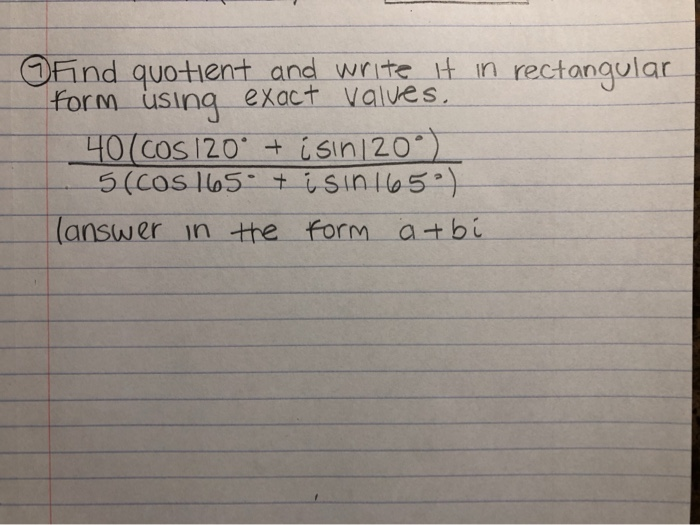 ⑦Find quotient and write it in rectangular
form using exact values.
40(cos120° + isin120°)
5(cos165° + isin165°)
(answer in the form a+bi